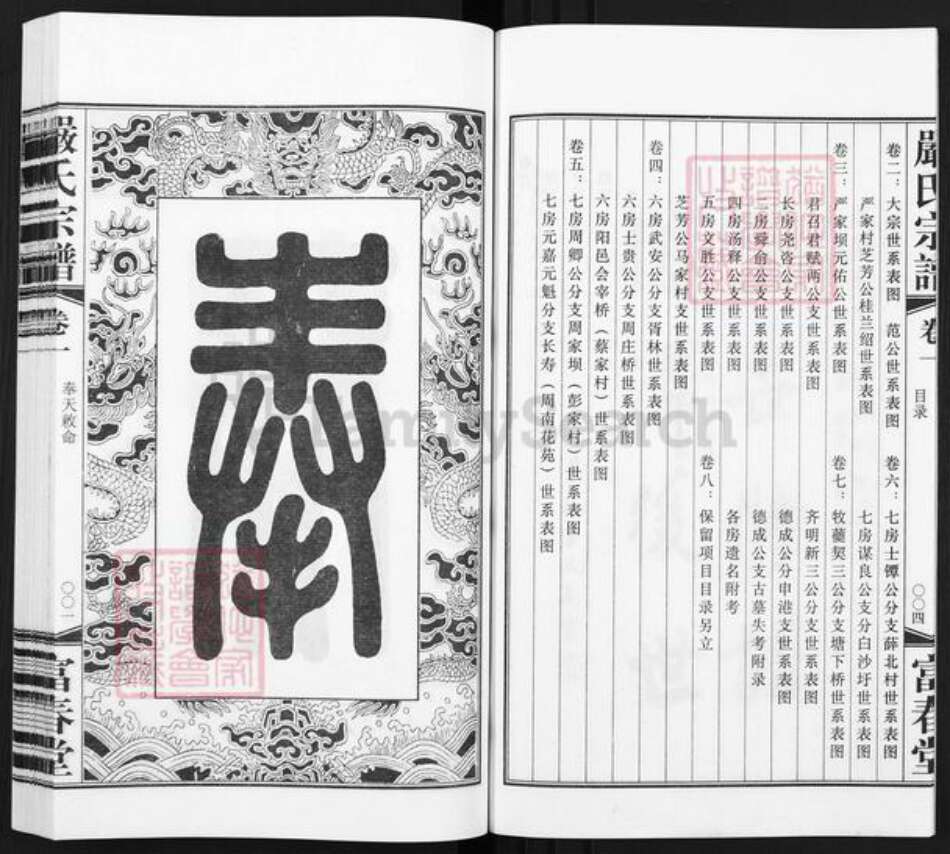 嚴氏宗譜
卷一
目录
〇〇四
富春堂
卷二：大宗世系表图 范公世系表图
严家村芝芳公桂兰绍世系表图
卷三：严家坝元佑公世系表图
君召君赋两公支世系表图
长房尧咨公支世系表图
二房舜俞公支世系表图
四房汤释公支世系表图
五房文胜公支世系表图
芝芳公马家村支世系表图
卷四：六房武安公分支胥林世系表图
六房士贵公分支周庄桥世系表图
六房阳邑会宰桥（蔡家村）世系表图
卷五：七房周卿公分支周家坝（彭家村）世系表图
七房元嘉元魁分支长寿（周南花苑）世系表图
卷六：七房士镡公分支薛北村世系表图
七房谋良公支分白沙圩世系表图
卷七：牧薳契三公分支塘下桥世系表图
齐明新三公分支世系表图
德成公分申港支世系表图
德成公支古墓失考附录
各房遗名附考
卷八：保留项目目录另立
奉
嚴氏宗譜
卷一
奉天敕命
〇〇一
富春堂
FamilySearch